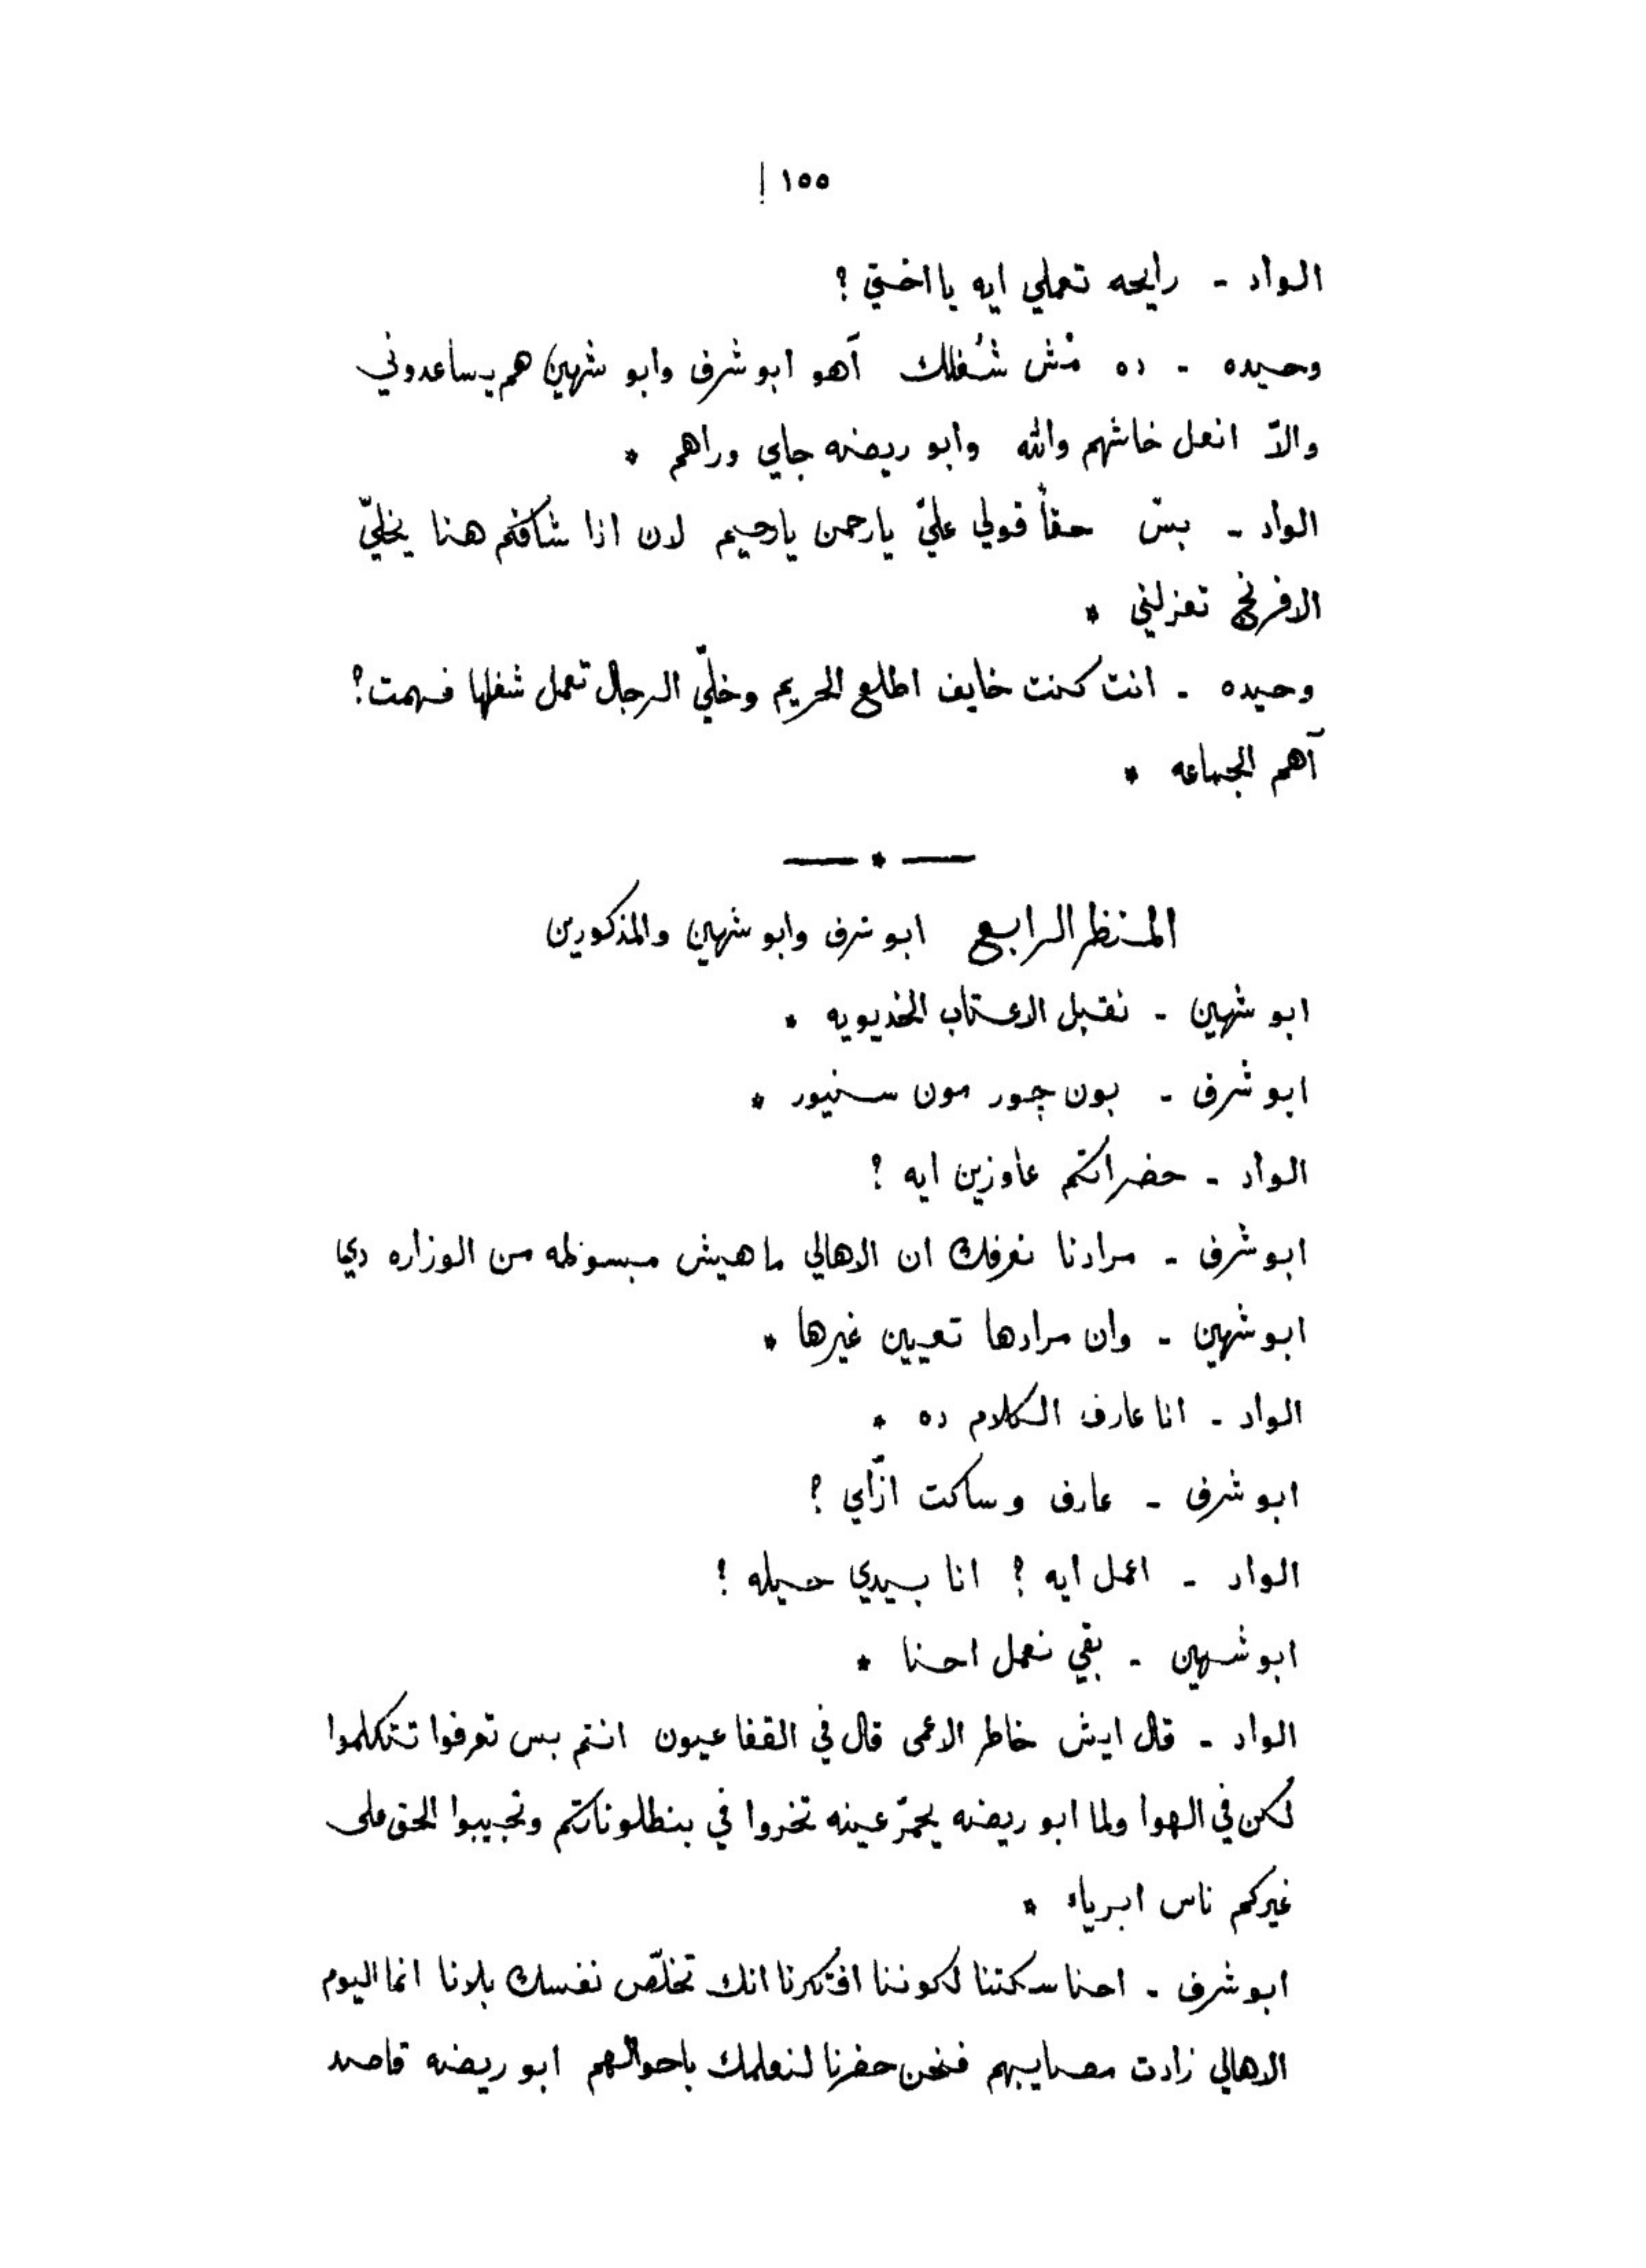 ١٥٥
الواد - رايحه تعملي ايه يا اختي ؟
وحيده - ده مُش شُغلك آهو ابو شرف وابو شهين هم يساعدوني
والاّ انعل خاشهم والله وابو ريضه جاي وراهم *
الواد - بسّ حقاً قولي عليّ يارحمن يارحيم لان اذا شافكم هنا يخليّ
الافرنج تعزلني *
وحيده - انت كنت خايف اطلع الحريم وخليّ الرجال تعمل شغلها فهمت ؟
آهم الجماعه *
— * —
المنظر الرابع ابو شرف وابو شهين والمذكورين
ابو شهين - نقبل الاعتاب الخديويه *
ابو شرف - بون چور مون سنيور *
الواد - حضراتكم عاوزين ايه ؟
ابو شرف - مرادنا نعرفك ان الاهالي ماهيش مبسوطه من الوزاره دي
ابو شهين - وان مرادها تعيين غيرها *
الواد - انا عارف الكلام ده *
ابو شرف - عارف وساكت ازّاي ؟
الواد - اعمل ايه ؟ انا بيدي حيله !
ابو شهين - بقي نعمل احنا *
الواد - قال ايش خاطر الاعمى قال في القفا عيون انتم بس تعرفوا تتكلموا
لكن في الهوا ولما ابو ريضه يحمرّ عينه تخروا في بنطلوناتكم وتجيبوا الحق على
غيركم ناس ابرياء *
ابو شرف - احنا سكتنا لكوننا افتكرنا انك تخلّص نفسك بلانا انما اليوم
الاهالي زادت مصايبهم فنحن حضرنا لنعلمك باحوالهم ابو ريضه قاصد